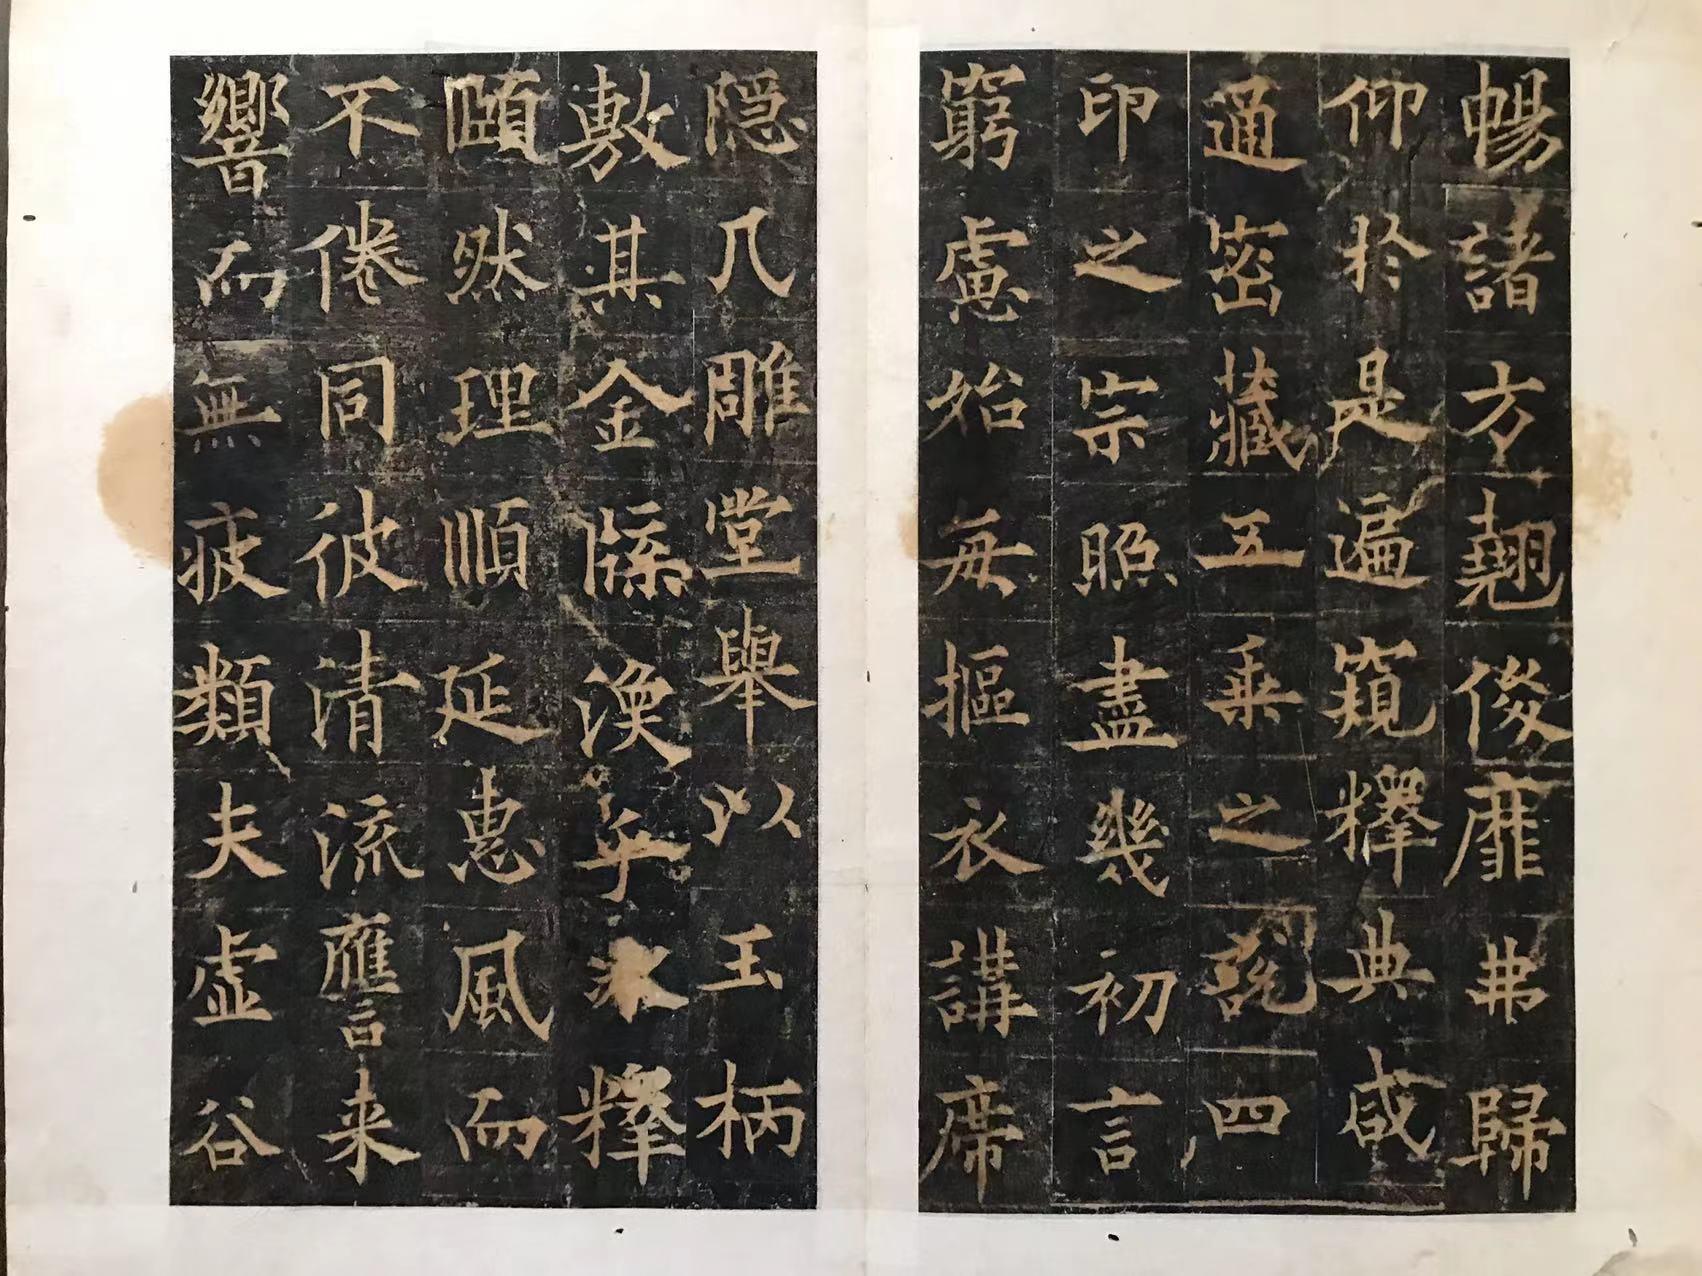 暢諸方翹俊靡弗歸
仰於是遍窺釋典咸
通密藏五乘之說四
印之宗照盡幾初言
窮慮始每摳衣講席
隱几雕堂舉以玉柄
敷其金牒渙乎冰釋
賾然理順延惠風而
不倦同彼清流應言来
響而無疲類夫虛谷